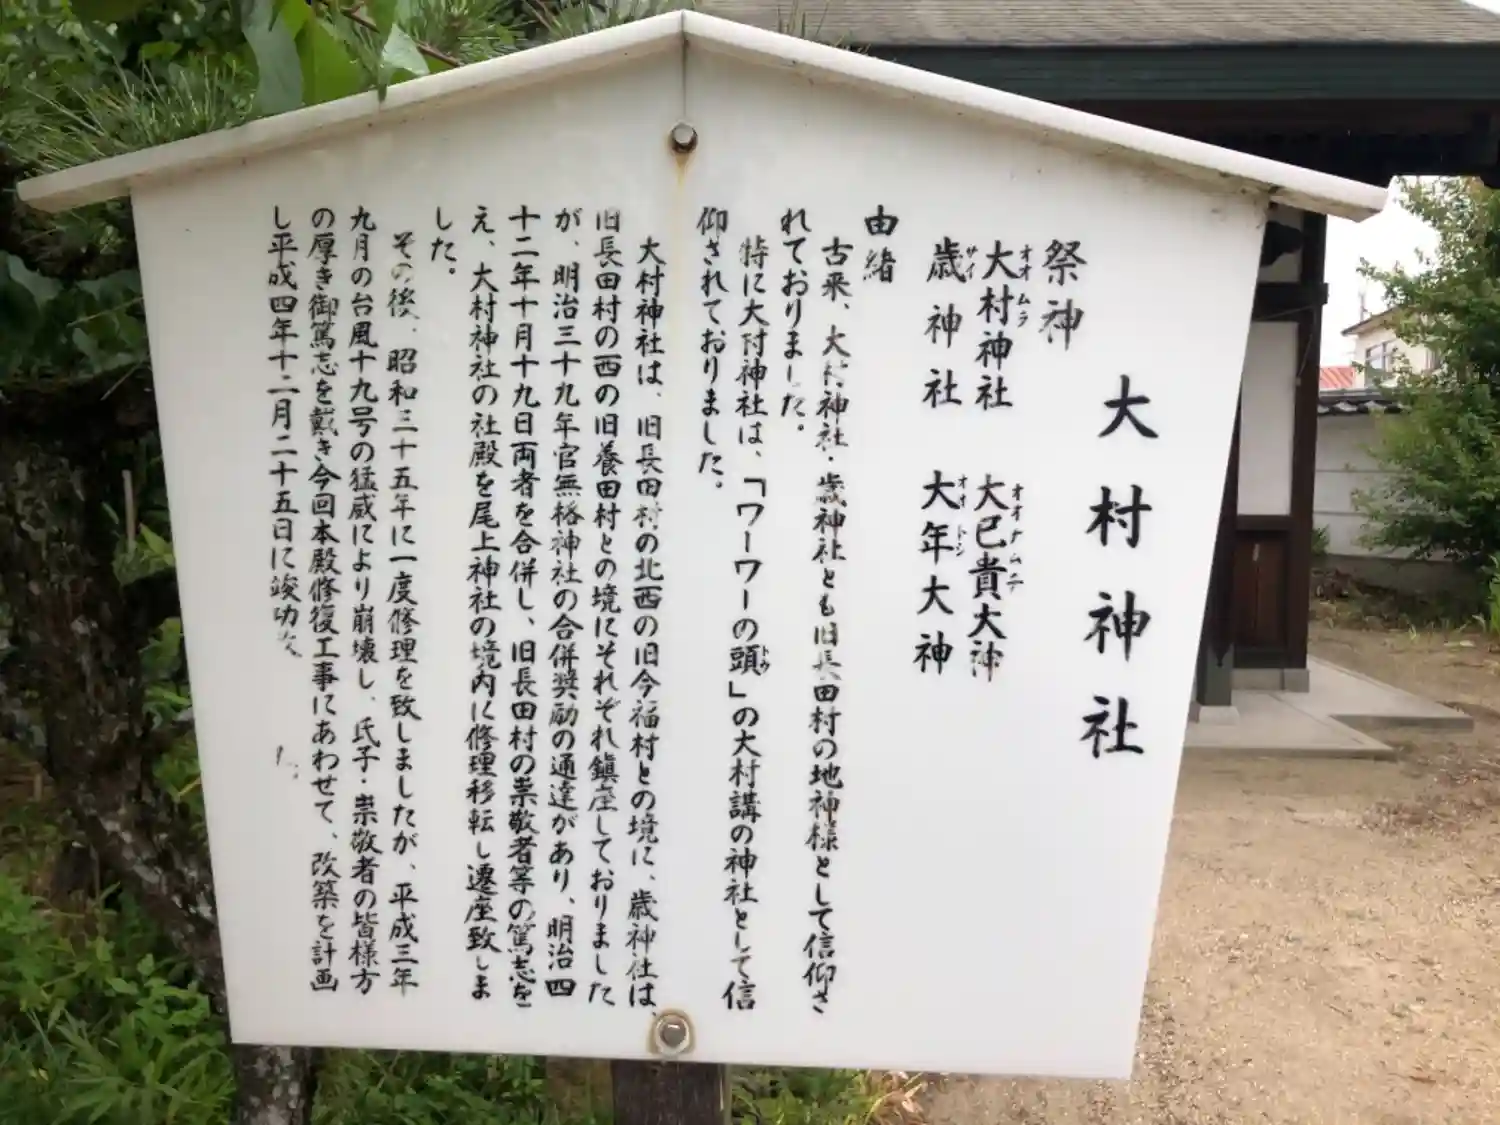 大村神社
祭神
大村神社　大已貴大神
オオムラ　オオナムニ
歳神社　大年大神
サイ　オオトシ
由緒
古来、大村神社・歳神社とも旧長田村の地神様として信仰さ
れておりました。
特に大村神社は、「ワーワーの頭」の大村講の神社として信
トウ
仰されておりました。
大村神社は、旧長田村の北西の旧今福村との境に、歳神社は、
旧長田村の西の旧養田村との境にそれぞれ鎮座しておりました
が、明治三十九年官無格神社の合併奨励の通達があり、明治四
十二年十月十九日両者を合併し、旧長田村の崇敬者等の篤志を
え、大村神社の社殿を尾上神社の境内に修理移転し遷座致しま
した。
その後、昭和三十五年に一度修理を致しましたが、平成三年
九月の台風十九号の猛威により崩壊し、氏子・崇敬者の皆様方
の厚き御篤志を戴き今回本殿修復工事にあわせて、改築を計画
し平成四年十二月二十五日に竣功
た。